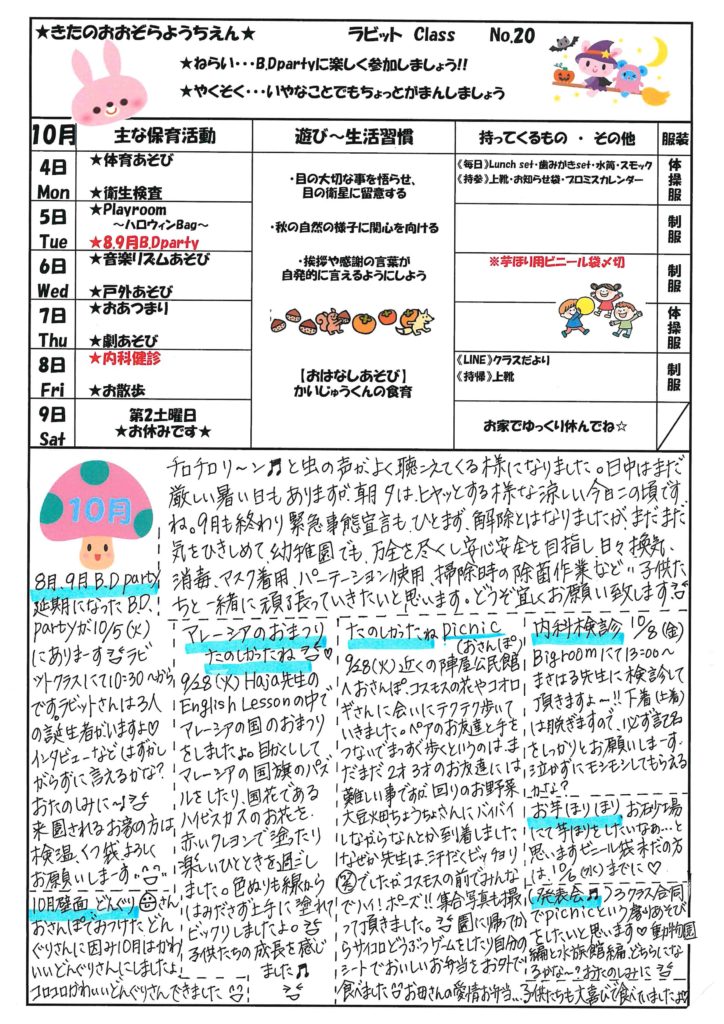 ★きたのおおぞらようちえん★ ラビット Class No.20
★ねらい・・・B.Dpartyに楽しく参加しましょう!!
★やくそく・・・いやなことでもちょっとがまんしましょう
10月 主な保育活動 遊び～生活習慣 持ってくるもの ・ その他 服装
4日 Mon
★体育あそび
★衛生検査
《毎日》Lunch set・歯みがきset・水筒・スモック
《持参》上靴・お知らせ袋・プロミスカレンダー
体操服
5日 Tue
★Playroom
～ハロウィンBag～
★8,9月B,Dparty
制服
6日 Wed
★音楽リズムあそび
★戸外あそび
※芋ほり用ビニール袋〆切
制服
7日 Thu
★おあつまり
★劇あそび
体操服
8日 Fri
★内科健診
★お散歩
《LINE》クラスだより
《持帰》上靴
制服
9日 Sat
第2土曜日
★お休みです★
お家でゆっくり休んでね☆
・目の大切な事を悟らせ、
目の衛星に留意する
・秋の自然の様子に関心を向ける
・挨拶や感謝の言葉が
自発的に言えるようにしよう
【おはなしあそび】
かいじゅうくんの食育
10月
チロチロリ～ン♬と虫の声がよく聴こえてくる様になりました。日中はまだ
厳しい暑い日もありますが、朝夕はヒヤッとする様な涼しい今日この頃です
ね。9月も終わり緊急事態宣言も、ひとまず、解除とはなりましたが、まだまだ
気をひきしめて幼稚園でも、万全を尽くし安心安全を目指し日々換気、
消毒、マスク着用、パーテーション使用、掃除時の除菌作業など‥子供た
ちと一緒に頑張っていきたいと思います。どうぞ宜くお願い致します
8月、9月B.D party
延期になったB.D.
partyが10/5(火)
にありまーす ラビ
ットクラスにて10:30～から
です。ラビットさんは3人
の誕生者がいますよ♡
インタビューなどはずかし
がらずに言えるかな?
おたのしみに～♪
来園されるお客の方は
検温、くつ袋、よろしく
お願いしまーす
10月壁面 どんぐり さん
おさんぽでみつけた、どん
ぐりさんに因み10月はかわ
いいどんぐりさんにしましたよ
コロコロかわいいどんぐりさんできました
マレーシアのおまつり
たのしかったね ♡
9/28(火)Haja先生の
English Lessonの中で
マレーシアの国のおまつり
をしましたよ。目かくしして
マレーシアの国旗のパズ
ルをしたり、国花である
ハイビスカスのお花を、
赤いクレヨンで塗ったり
楽しいひとときを過ごし
ました。色ぬりも線から
はみださず上手に塗れて
ビックリしましたよ。
子供たちの成長を感じ
ました♬
たのしかったね picnic
(おさんぽ)
9/28(火)近くの陣屋公民館
へおさんぽ。コスモスの花やコオロ
ギさんに会いにテクテク歩いて
いきました。ペアのお友達と手を
つないでまっすぐ歩くというのは、ま
だまだ2才3才のお友達には
難しい事ですが回りのお野菜
大豆畑ちょうちょさんにバイバイ
しながらなんとか到着しました
なぜか先生は、汗だくビッチョリ
でしたがコスモスの前でみんな
でハイ!ポーズ!!集合写真も撮
って頂きました。 園に帰ってか
らサイコロどうぶつゲームをしたり自分の
シートでおいしいお弁当をお外で
食べました お母さんの愛情お弁当…子供たちも大喜びで食べていましたよ
内科検診 10/8(金)
Big roomにて13:00～
まさはる先生に検診して
頂きますよー!!下着(上着)
は脱ぎますので、必ず記名
をしっかりとお願いしまーす。
泣かずにモシモシしてもらえる
かな?
お芋ほりほり お砂場
にて芋ほりをしたいなぁ…と
思いますビニール袋まだの方
は、10/6(水)までに♡
(発表会♬)3クラス合同
でpicnicという劇あそび
をしたいと思います♡動物園
編と水族館編、どちらにな
るかな～?おたのしみに